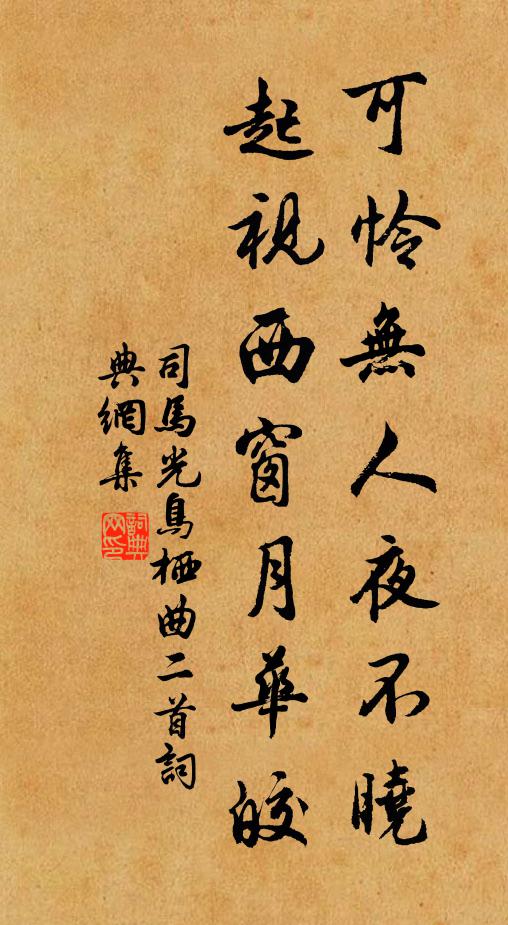 可怜無人夜不曉
起視西窗月華皎
司馬光烏栖曲二首詞
典網集
詞典
网印